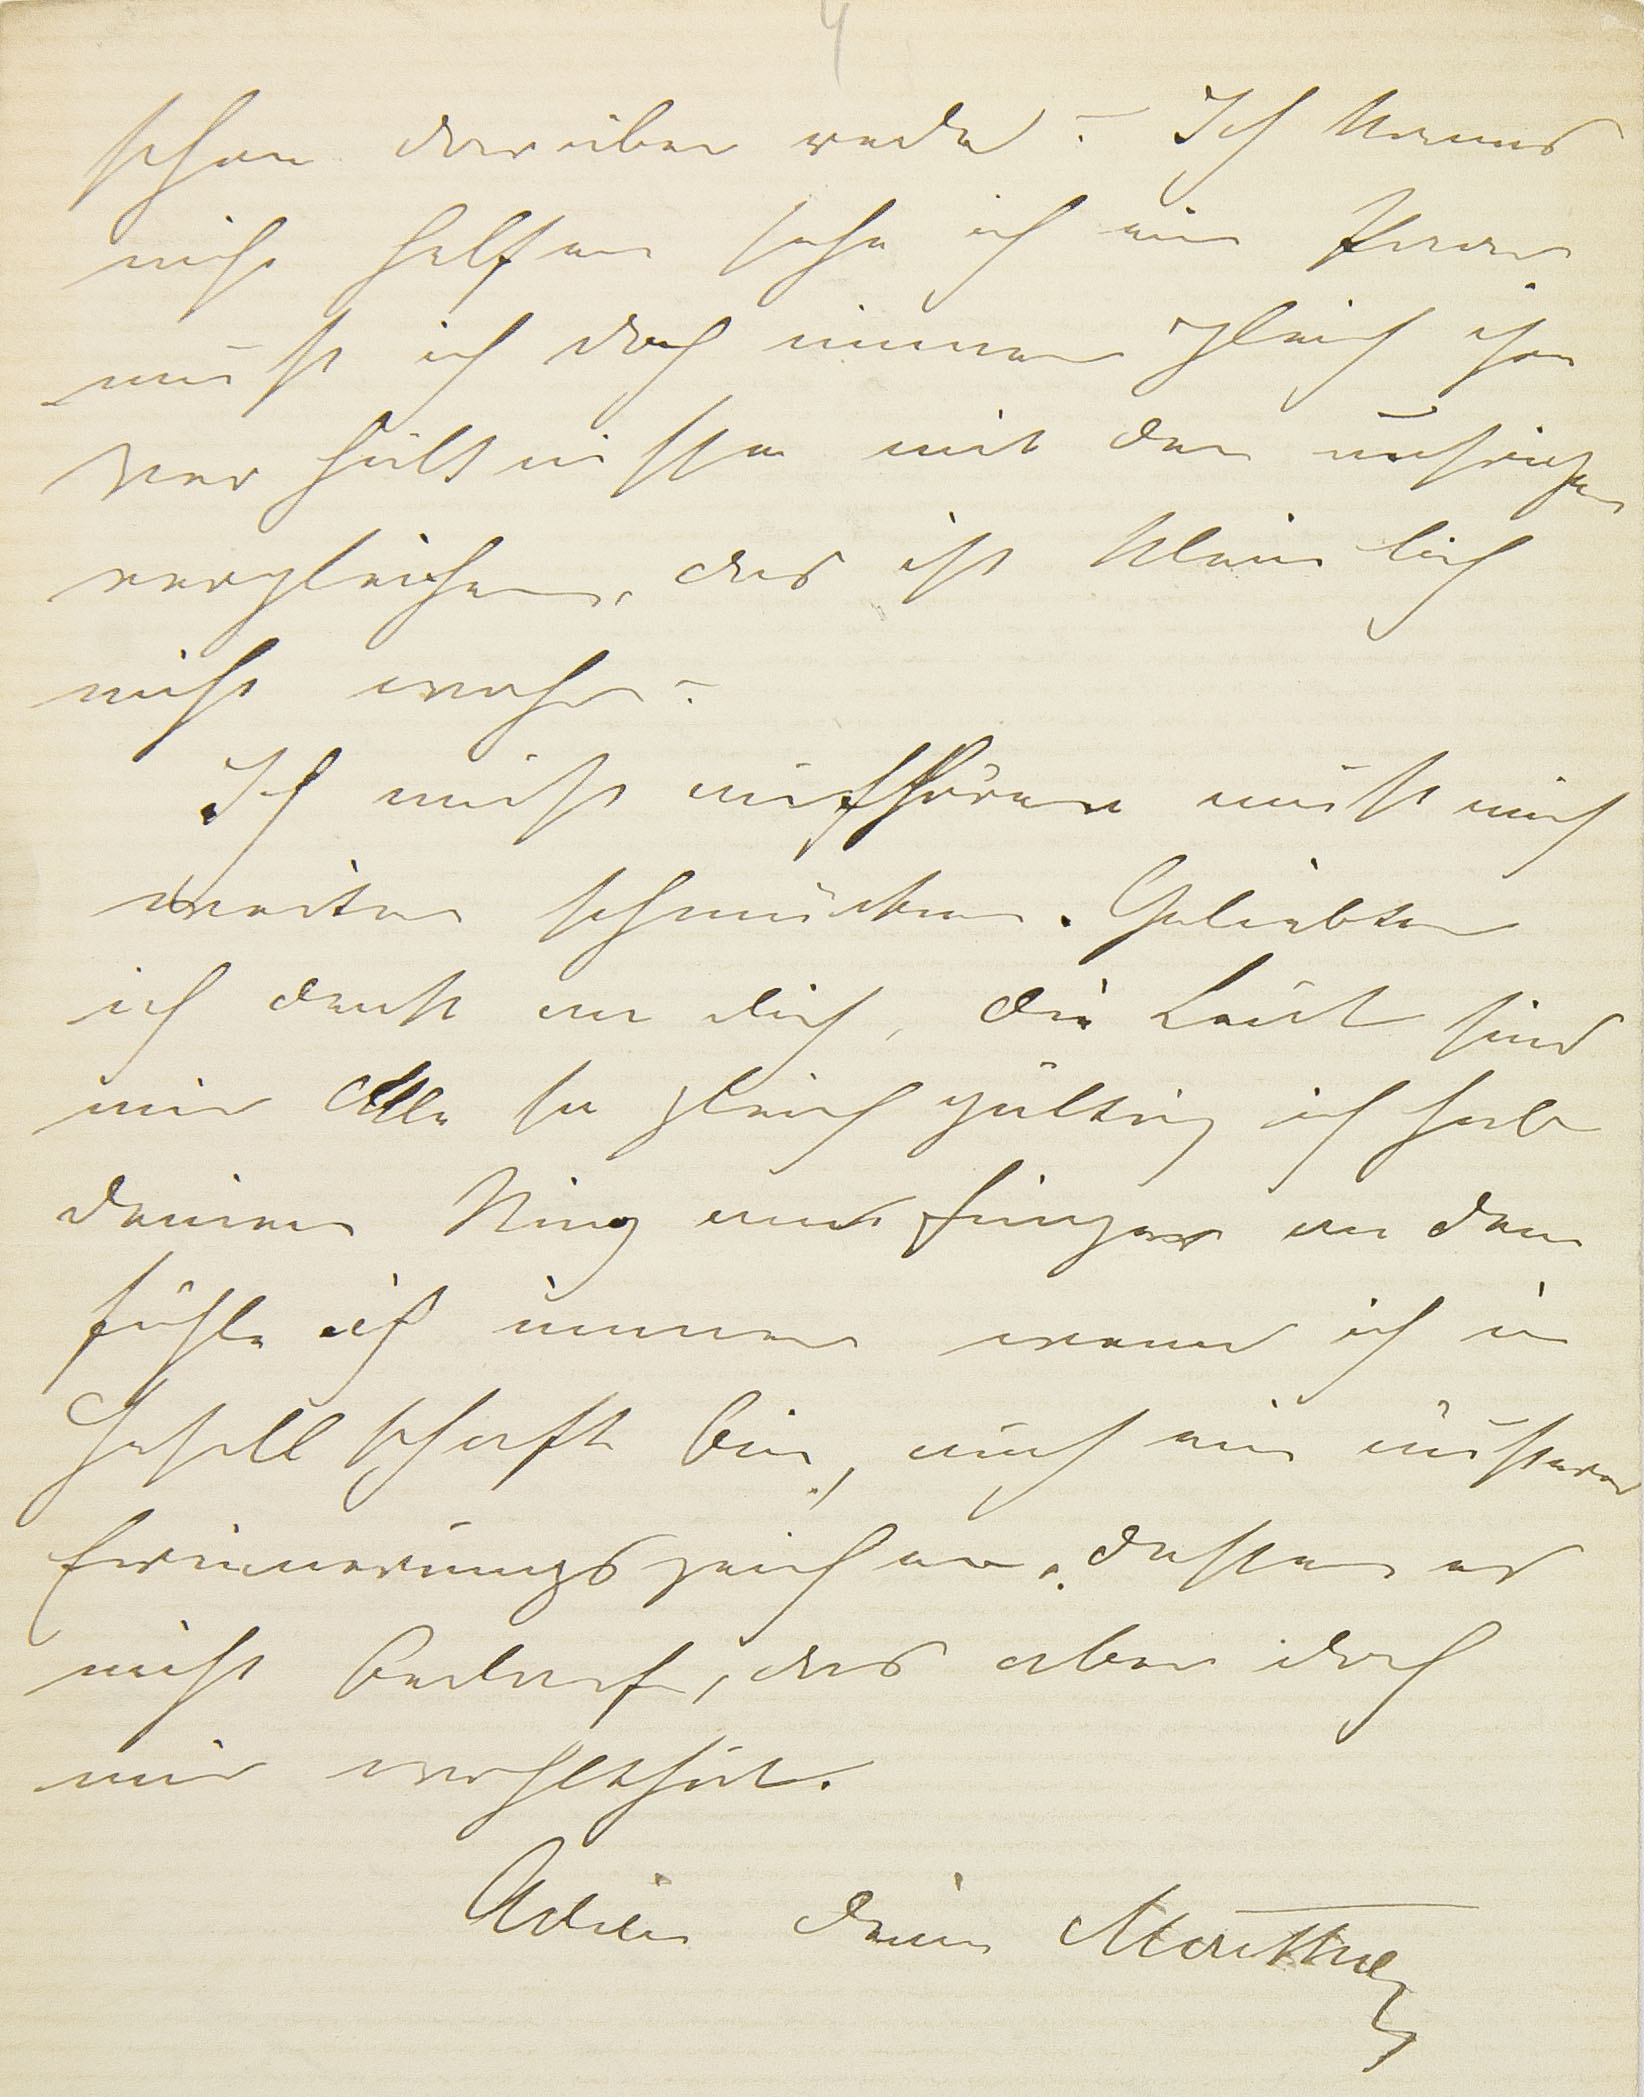 4
schon darüber rede – Ich kann's
nicht helfen sehe ich ein Paar
muß ich doch immer gleich ihre
Verhältnisse mit den unsrigen
vergleichen, das ist kleinlich
nicht wahr –
Ich muß aufhören muß mich
weiter schmücken. Geliebter
ich denk an dich, die Leut sind
mir Alle so gleichgültig ich hab
deinen Ring am Finger an den
fühle ich immer wenn ich in
Gesellschaft bin, auch ein äußeres
Erinnerungszeichen, dessen es
nicht bedarf, das aber doch
mir wohlthut.
Adieu dein